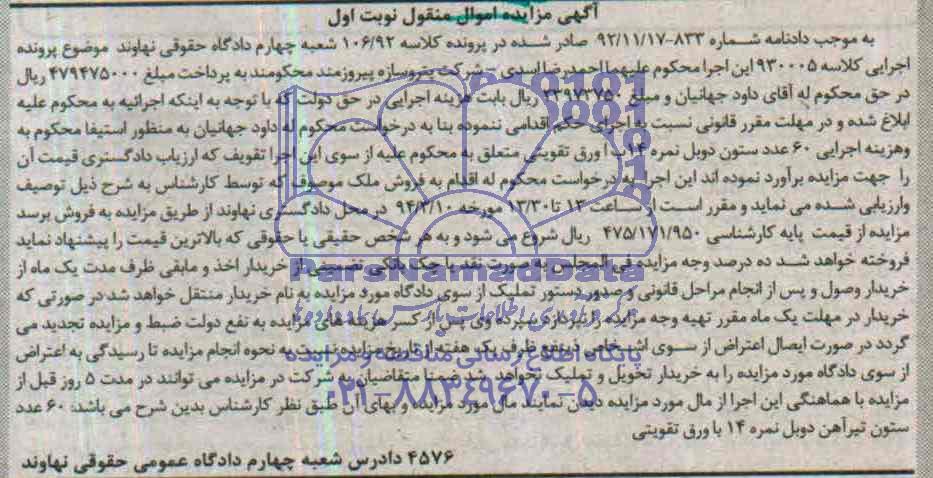 آگهی مزایده اموال منقول نوبت اول
به موجب دادنامه شماره ۸۳۳-۹۲/۱۱/۱۷ صادر شده در پرونده کلاسه ۱۰۶/۹۲ شعبه چهارم دادگاه حقوقی نهاوند موضوع پرونده
اجرایی کلاسه ۹۳۰۰۰۵ این اجرا محکوم علیهما احمدرضا اسدی – شرکت پتروسازه پیروزمند محکومند به پرداخت مبلغ ۴۷۹۴۷۵۰۰۰ ریال
در حق محکوم له آقای داود جهانیان و مبلغ ۲۳۹۷۳۷۵۰ ریال بابت هزینه اجرایی در حق دولت که با توجه به اینکه اجرائیه به محکوم علیه
ابلاغ شده و در مهلت مقرر قانونی نسبت به اجرای حکم اقدامی ننموده بنا به درخواست محکوم له داود جهانیان به منظور استیفا محکوم به
وهزینه اجرایی ۶۰ عدد ستون دوبل نمره ۱۴ با ورق تقویتی متعلق به محکوم علیه از سوی این اجرا توقیف که ارزیاب دادگستری قیمت آن
را جهت مزایده برآورد نموده اند این اجرا به درخواست محکوم له اقدام به فروش ملک موصوف که توسط کارشناس به شرح ذیل توصیف
وارزیابی شده می نماید و مقرر است از ساعت ۱۳ تا ۱۳/۳۰ مورخه ۹۴/۲/۱۰ در محل دادگستری نهاوند از طریق مزایده به فروش برسد
مزایده از قیمت پایه کارشناسی ۴۷۵/۱۷۱/۹۵۰ ریال شروع می شود و به هر شخص حقیقی یا حقوقی که بالاترین قیمت را پیشنهاد نماید
فروخته خواهد شد ده درصد وجه مزایده فی المجلس به صورت نقد یا چک بانکی تضمینی از خریدار اخذ و مابقی ظرف مدت یک ماه از
خریدار وصول و پس از انجام مراحل قانونی و صدور دستور تملیک از سوی دادگاه مورد مزایده به نام خریدار منتقل خواهد شد در صورتی که
خریدار در مهلت یک ماه مقرر تهیه وجه مزایده را نپردازد سپرده وی پس از کسر هزینه های مزایده به نفع دولت ضبط و مزایده تجدید می
گردد در صورت ایصال اعتراض از سوی اشخاص ذینفع ظرف یک هفته از تاریخ مزایده نسبت به نحوه انجام مزایده تا رسیدگی به اعتراض
از سوی دادگاه مورد مزایده را به خریدار تحویل و تملیک نخواهد شد ضمنا متقاضیان به شرکت در مزایده می توانند در مدت ۵ روز قبل از
مزایده با هماهنگی این اجرا از مال مورد مزایده دیدن نمایند مال مورد مزایده و بهای آن طبق نظر کارشناس بدین شرح می باشد: ۶۰ عدد
ستون تیرآهن دوبل نمره ۱۴ با ورق تقویتی
۴۵۷۶ دادرس شعبه چهارم دادگاه عمومی حقوقی نهاوند
ParsNamadData
پایگاه اطلاع رسانی مناقصه و مزایده
۰۲۱-۸۸۳۴۹۶۷۰-۵